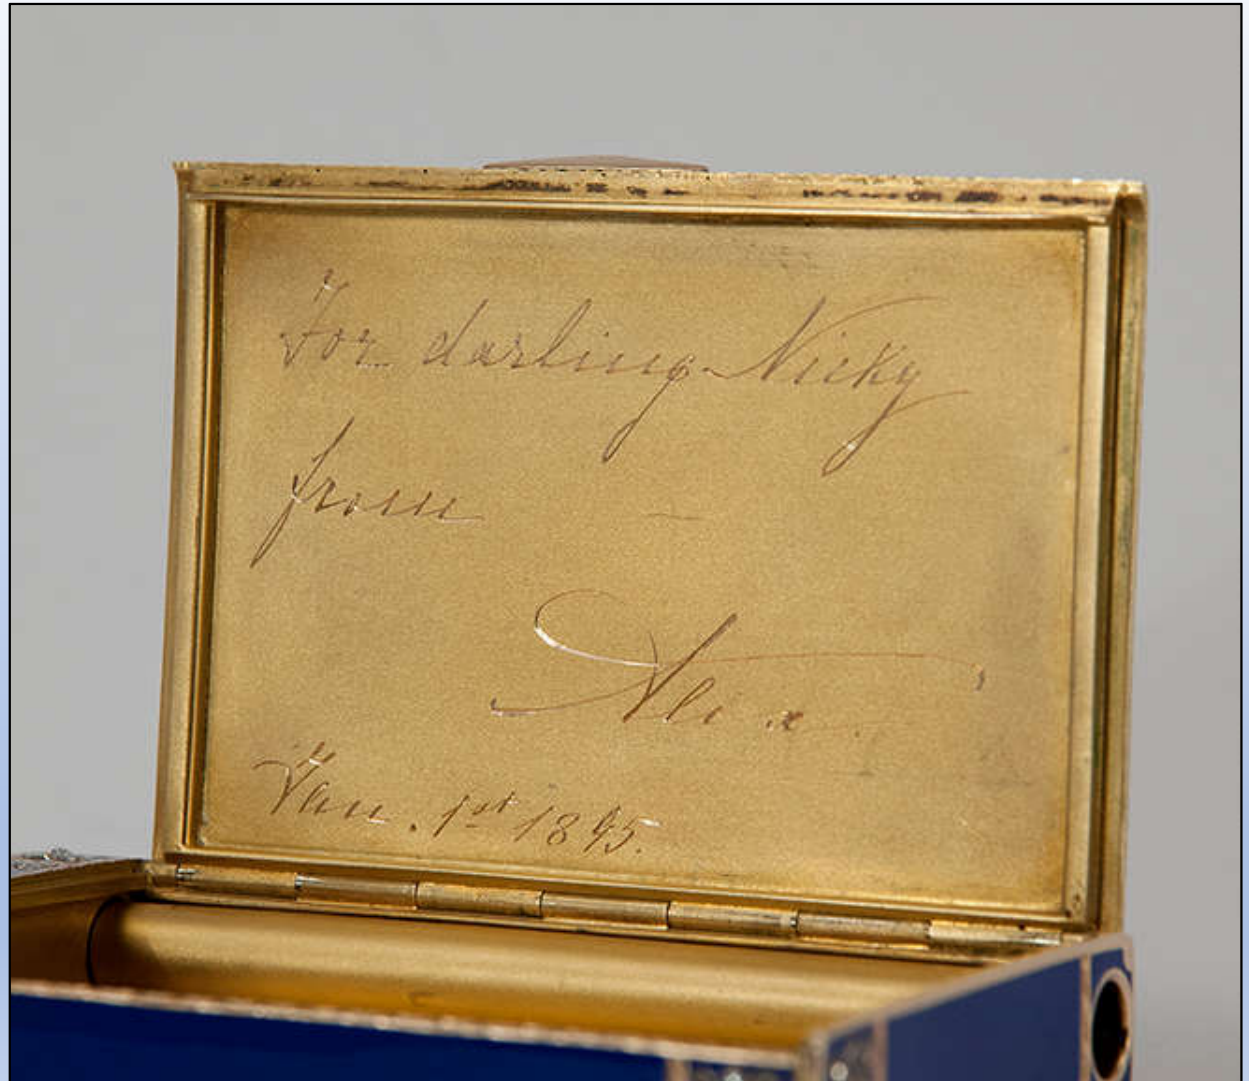 For darling Nicky
from
Alix.
Jan. 1st 1895.